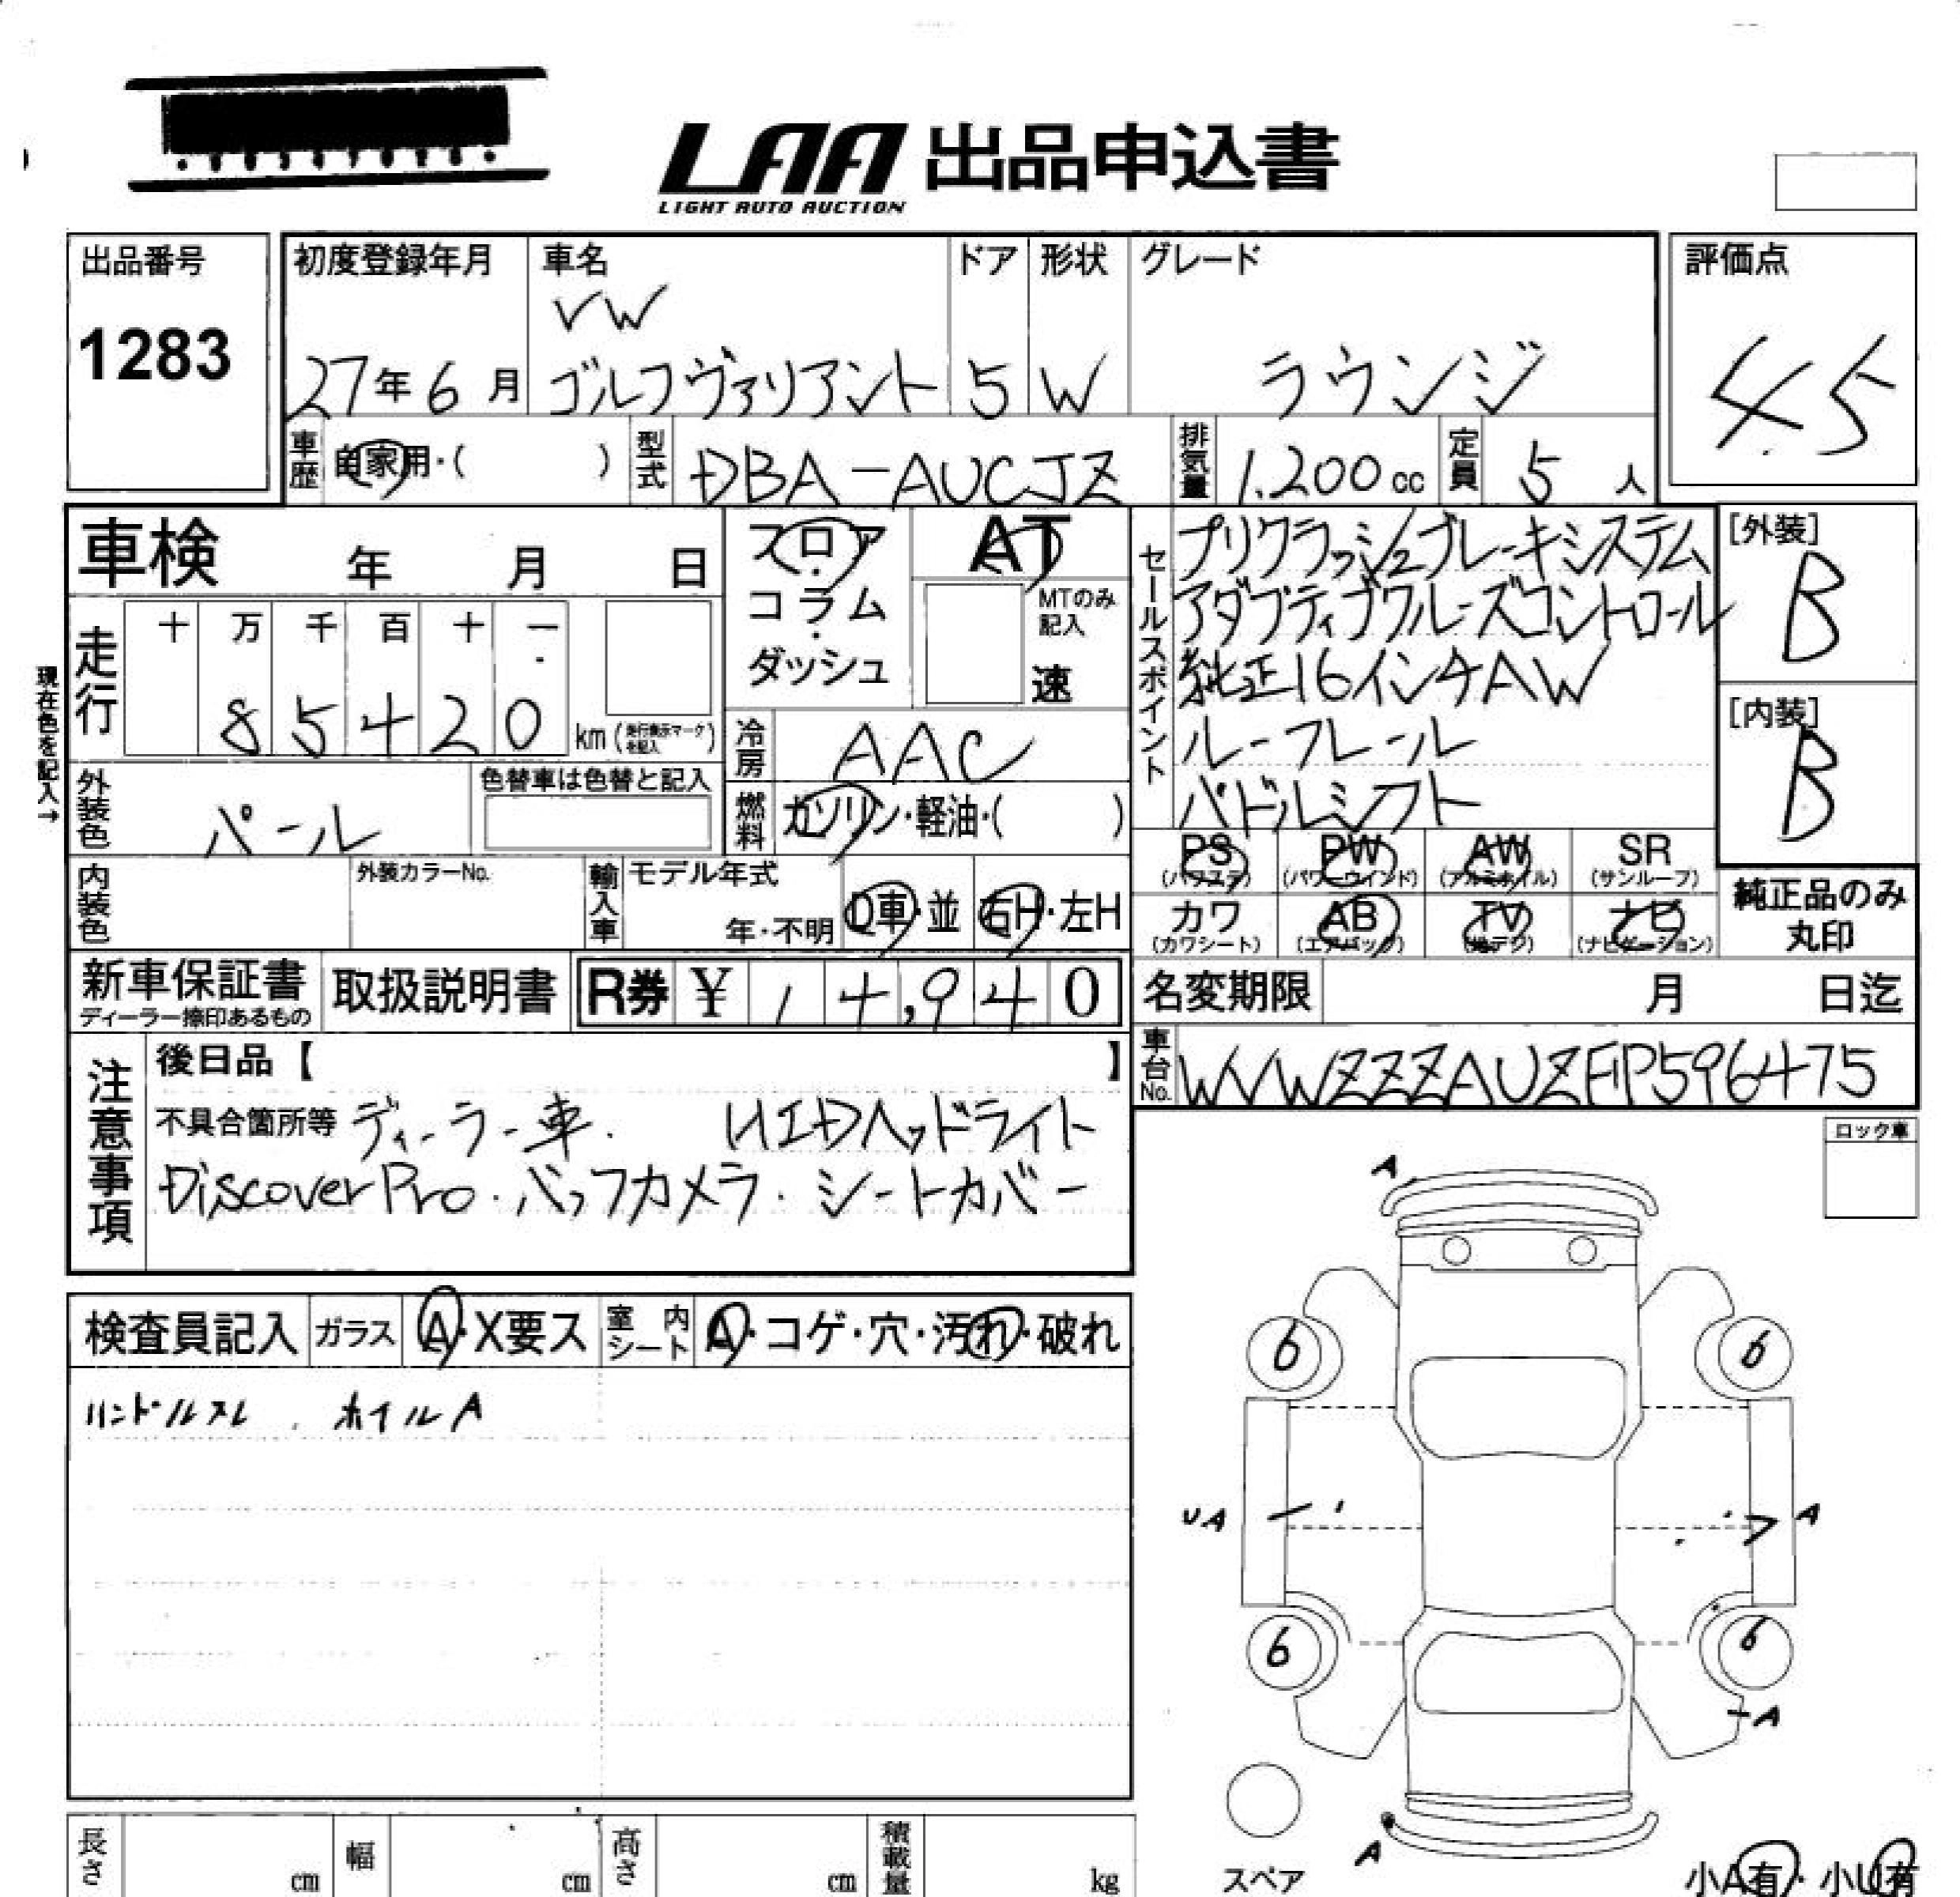 LAA 出品申込書
LIGHT AUTO AUCTION
出品番号
1283
初度登録年月
27年6月
車名
VW
ゴルフヴァリアント
ドア
5
形状
W
グレード
ラウンジ
評価点
4.5
車歴
自家用・( )
型式
DBA-AUCJZ
排気量
1.200cc
定員
5人
車検 年 月 日
フロア・
コラム・
ダッシュ
AT
MTのみ
記入
速
セールスポイント
プリクラッシュブレーキシステム
アダプティブクルーズコントロール
純正16インチAW
ルーフレール
パドルシフト
[外装]
B
[内装]
B
現在色を記入→
走行
十 万 千 百 十 一
8 5 4 2 0 km(走行表示マークを記入)
冷房
AAC
外装色
パール
色替車は色替と記入
燃料
ガソリン・軽油・( )
内装色
外装カラーNo.
輸入車
モデル年式
年・不明
D車・並
右H・左H
PS
(パワステ)
PW
(パワーウインド)
AW
(アルミホイル)
SR
(サンルーフ)
カワ
(カワシート)
AB
(エアバック)
TV
(地デジ)
ナビ
(ナビゲーション)
純正品のみ
丸印
新車保証書
ディーラー捺印あるもの
取扱説明書
R券 ¥ 14,940
名変期限 月 日迄
車台No.
WVWZZZAUZFP596475
注意事項
後日品【 】
不具合箇所等 ディーラー車. HIDヘッドライト
DiscoverPro・バックカメラ・シートカバー
ロック車
検査員記入
ガラス
A・X要ス
室内シート
A・コゲ・穴・汚れ・破れ
ハンドルスレ . ホイルA
A
6 6
UA A
6 6
A
A
スペア
小A有・小U有
長さ cm
幅 cm
高さ cm
積載量 kg